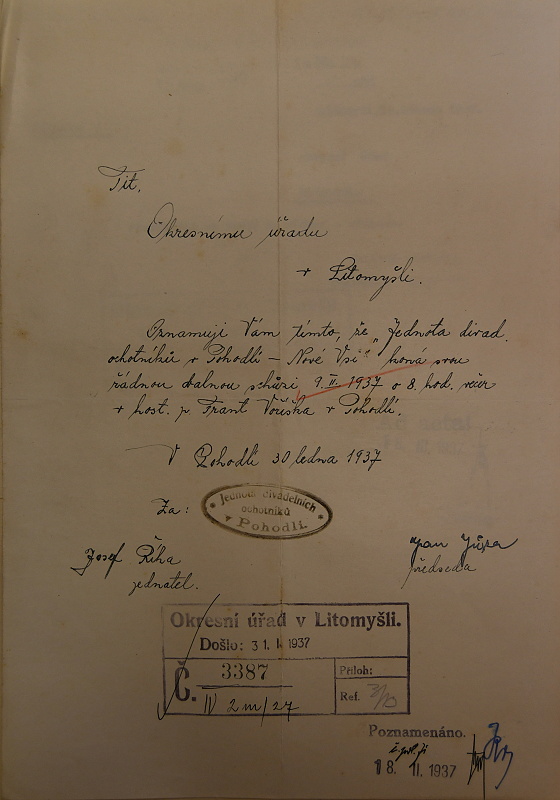 Tit.
Okresnímu úřadu
v Litomyšli.
Oznamuji Vám tímto, že „Jednota divad.
ochotníků v Pohodlí – Nové Vsi“ koná svou
řádnou valnou schůzi 9. II. 1937 o 8. hod. večer
v host. p. Frant Voříška v Pohodlí.
V Pohodlí 30 ledna 1937
Za:
Jednota divadelních
ochotníků
v Pohodlí.
Josef Říha
jednatel.
Jan
předseda
Okresní úřad v Litomyšli.
Došlo: 31. I. 1937
Č. 3387
Příloh:
IV 2 m/27
Ref.
Poznamenáno.
18. II. 1937